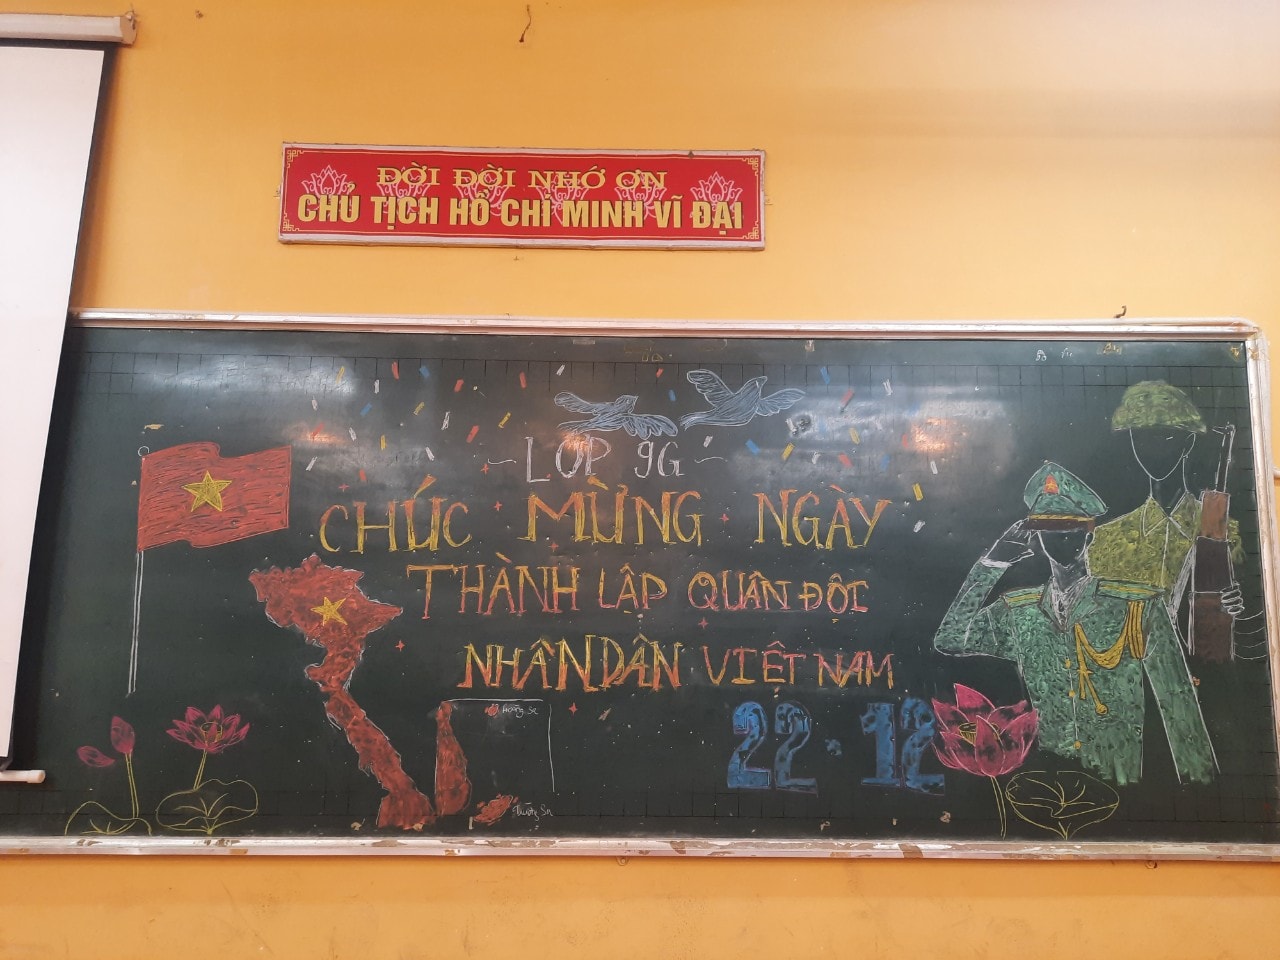 ĐỜI ĐỜI NHỚ ƠN
CHỦ TỊCH HỒ CHÍ MINH VĨ ĐẠI
~ LỚP 9G ~
CHÚC MỪNG NGÀY
THÀNH LẬP QUÂN ĐỘI
NHÂN DÂN VIỆT NAM
Hoàng Sa
22.12
Trường Sa